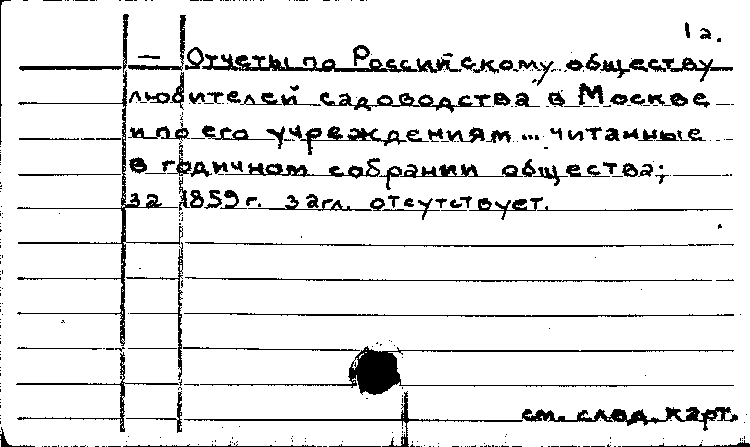 1а.
— Отчеты по Российскому обществу
любителей садоводства в Москве
и по его учреждениям ... читанные
в годичном собрании общества;
за 1859 г. загл. отсутствует.
см. след. карт.